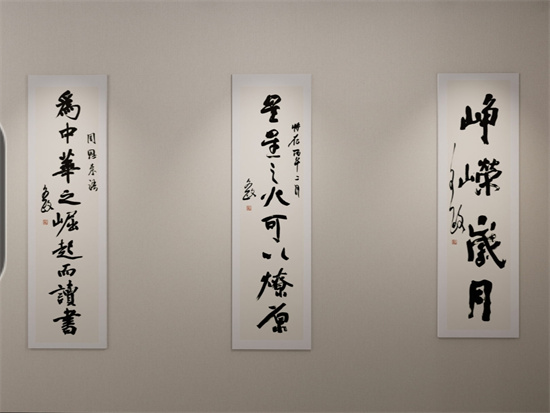 為中華之崛起而讀書
周恩來語
星星之火可以燎原
崢嶸歲月